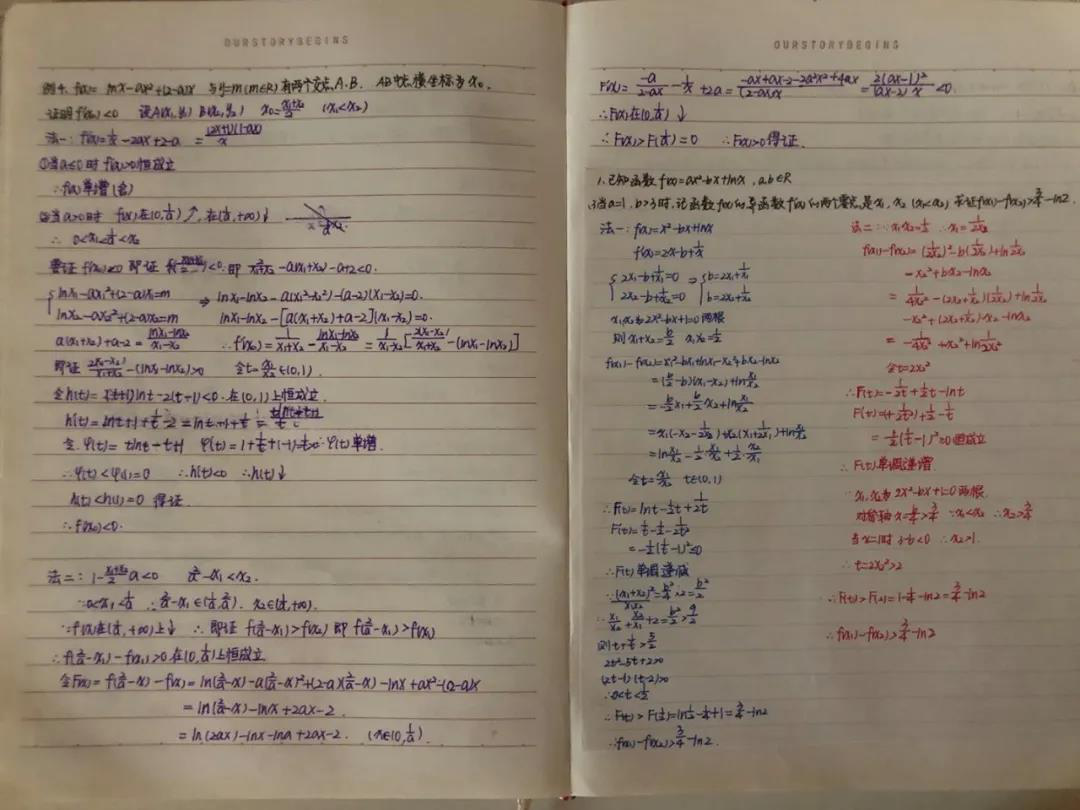 OURSTORYBEGINS
例4. f(x)= lnx-ax²+(2-a)x 与y=m(m∈R)有两个交点,A.B. AB中点横坐标为x₀.
证明f'(x₀)<0 设A(x₁,y₁) B(x₂,y₂) x₀=(x₁+x₂)/2 (x₁<x₂)
法一: f'(x)=1/x-2ax+2-a = (2x+1)(1-ax)/x
①当a≤0时 f'(x)>0恒成立
∴f(x)单增(舍)
②当a>0时 f(x)在(0,1/a)↗,在(1/a,+∞)↓
∴ 0<x₁<1/a<x₂
要证f'(x₀)<0 即证 f'((x₁+x₂)/2)<0.即 2/(x₁+x₂)-a(x₁+x₂)-a+2<0.
lnx₁-ax₁²+(2-a)x₁=m ⇒ lnx₁-lnx₂-a(x₁²-x₂²)-(a-2)(x₁-x₂)=0.
lnx₂-ax₂²+(2-a)x₂=m lnx₁-lnx₂-[a(x₁+x₂)+a-2](x₁-x₂)=0.
a(x₁+x₂)+a-2=(lnx₁-lnx₂)/(x₁-x₂) ∴f'(x₀)=2/(x₁+x₂)-(lnx₁-lnx₂)/(x₁-x₂)=1/(x₁-x₂)[2(x₁-x₂)/(x₁+x₂)-(lnx₁-lnx₂)]
即证 2(x₁-x₂)/(x₁+x₂)-(lnx₁-lnx₂)>0 令t=x₁/x₂∈(0,1).
令h(t)=(t+1)lnt-2(t-1)<0.在(0,1)上恒成立
h'(t)=lnt+1+1/t-2=lnt-1+1/t=(tlnt-t+1)/t
令φ(t)=tlnt-t+1
∴φ(t)<φ(1)=0 ∴h'(t)<0 ∴h(t)↓
h(t)<h(1)=0 得证.
∴f'(x₀)<0.
法二: 1-(x₁+x₂)/2 a<0 2/a-x₁<x₂.
∵0<x₁<1/a ∴2/a-x₁∈(1/a,2/a). x₂∈(1/a,+∞).
∵f(x)在(1/a,+∞)上↓ ∴即证f(2/a-x₁)>f(x₂) 即f(2/a-x₁)>f(x₁)
∴f(2/a-x₁)-f(x₁)>0在(0,1/a)上恒成立
令F(x)=f(2/a-x)-f(x)=ln(2/a-x)-a(2/a-x)²+(2-a)(2/a-x)-lnx+ax²-(2-a)x
=ln(2/a-x)-lnx+2ax-2.
=ln(2-ax)-lnx-lna+2ax-2. (x∈(0,1/a).
OURSTORYBEGINS
F'(x)=-a/(2-ax)-1/x+2a=(-ax+ax-2-2a²x²+4ax)/((2-ax)x)=2(ax-1)²/((ax-2)x)<0
∴F(x)在(0,1/a)↓
∴F(x)>F(1/a)=0 ∴F(x)>0得证.
1.已知函数f(x)=ax²-bx+lnx,a,b∈R
(3)当a=1,b>3时,记函数f(x)的导函数f'(x)的两个零点是x₁,x₂(x₁<x₂) 求证f(x₁)-f(x₂)>3/4-ln2.
法一: f(x)=x²-bx+lnx
f'(x)=2x-b+1/x
2x₁-b+1/x₁=0 ⇒ b=2x₁+1/x₁
2x₂-b+1/x₂=0 b=2x₂+1/x₂
x₁,x₂为2x²-bx+1=0两根
则x₁+x₂=b/2 x₁x₂=1/2
f(x₁)-f(x₂)=x₁²-bx₁+lnx₁-x₂²+bx₂-lnx₂
=(b/2-b)(x₁-x₂)+ln x₁/x₂
=-b/2x₁+b/2x₂+ln x₁/x₂
=x₁(-x₂-1/2x₂)+x₂(x₁+1/2x₁)+ln x₁/x₂
=ln x₁/x₂-1/2·x₁/x₂+1/2·x₂/x₁
令t=x₁/x₂ t∈(0,1)
∴F(t)=lnt-1/2t+1/2t
F'(t)=1/t-1/2-1/2t²
=-1/2(1/t-1)²≤0
∴F(t)单调递减
∵(x₁+x₂)²/x₁x₂=b²/4×2=b²/2
∴x₁/x₂+x₂/x₁+2=b²/2>9/2
则t+1/t>5/2
2t²-5t+2>0
(2t-1)(t-2)>0
∴0<t<1/2
∴F(t)>F(1/2)=ln1/2-1/4+1=3/4-ln2
∴f(x₁)-f(x₂)>3/4-ln2.
法二: ∵x₁x₂=1/2 ∴x₁=1/2x₂
f(x₁)-f(x₂)=(1/2x₂)²-b(1/2x₂)+ln1/2x₂
-x₂²+bx₂-lnx₂
=1/4x₂²-(2x₂+1/x₂)(1/2x₂)+ln1/2x₂
-x₂²+(2x₂+1/x₂)·x₂-lnx₂
=-1/4x₂²+x₂²+ln1/2x₂²
令t=2x₂²
∴F(t)=-1/2t+1/2t-lnt
=1/2(1/t-1)²≥0恒成立
∴F(t)单调递增.
∵x₁,x₂为2x²-bx+1=0两根.
对称轴x=b/4>3/4 ∵x₁<x₂ ∴x₂>3/4
当x=1时 3-b<0 ∴x₂>1.
∴t=2x₂²>2
∴F(t)>F(2)=1-1/4-ln2=3/4-ln2
∴f(x₁)-f(x₂)>3/4-ln2